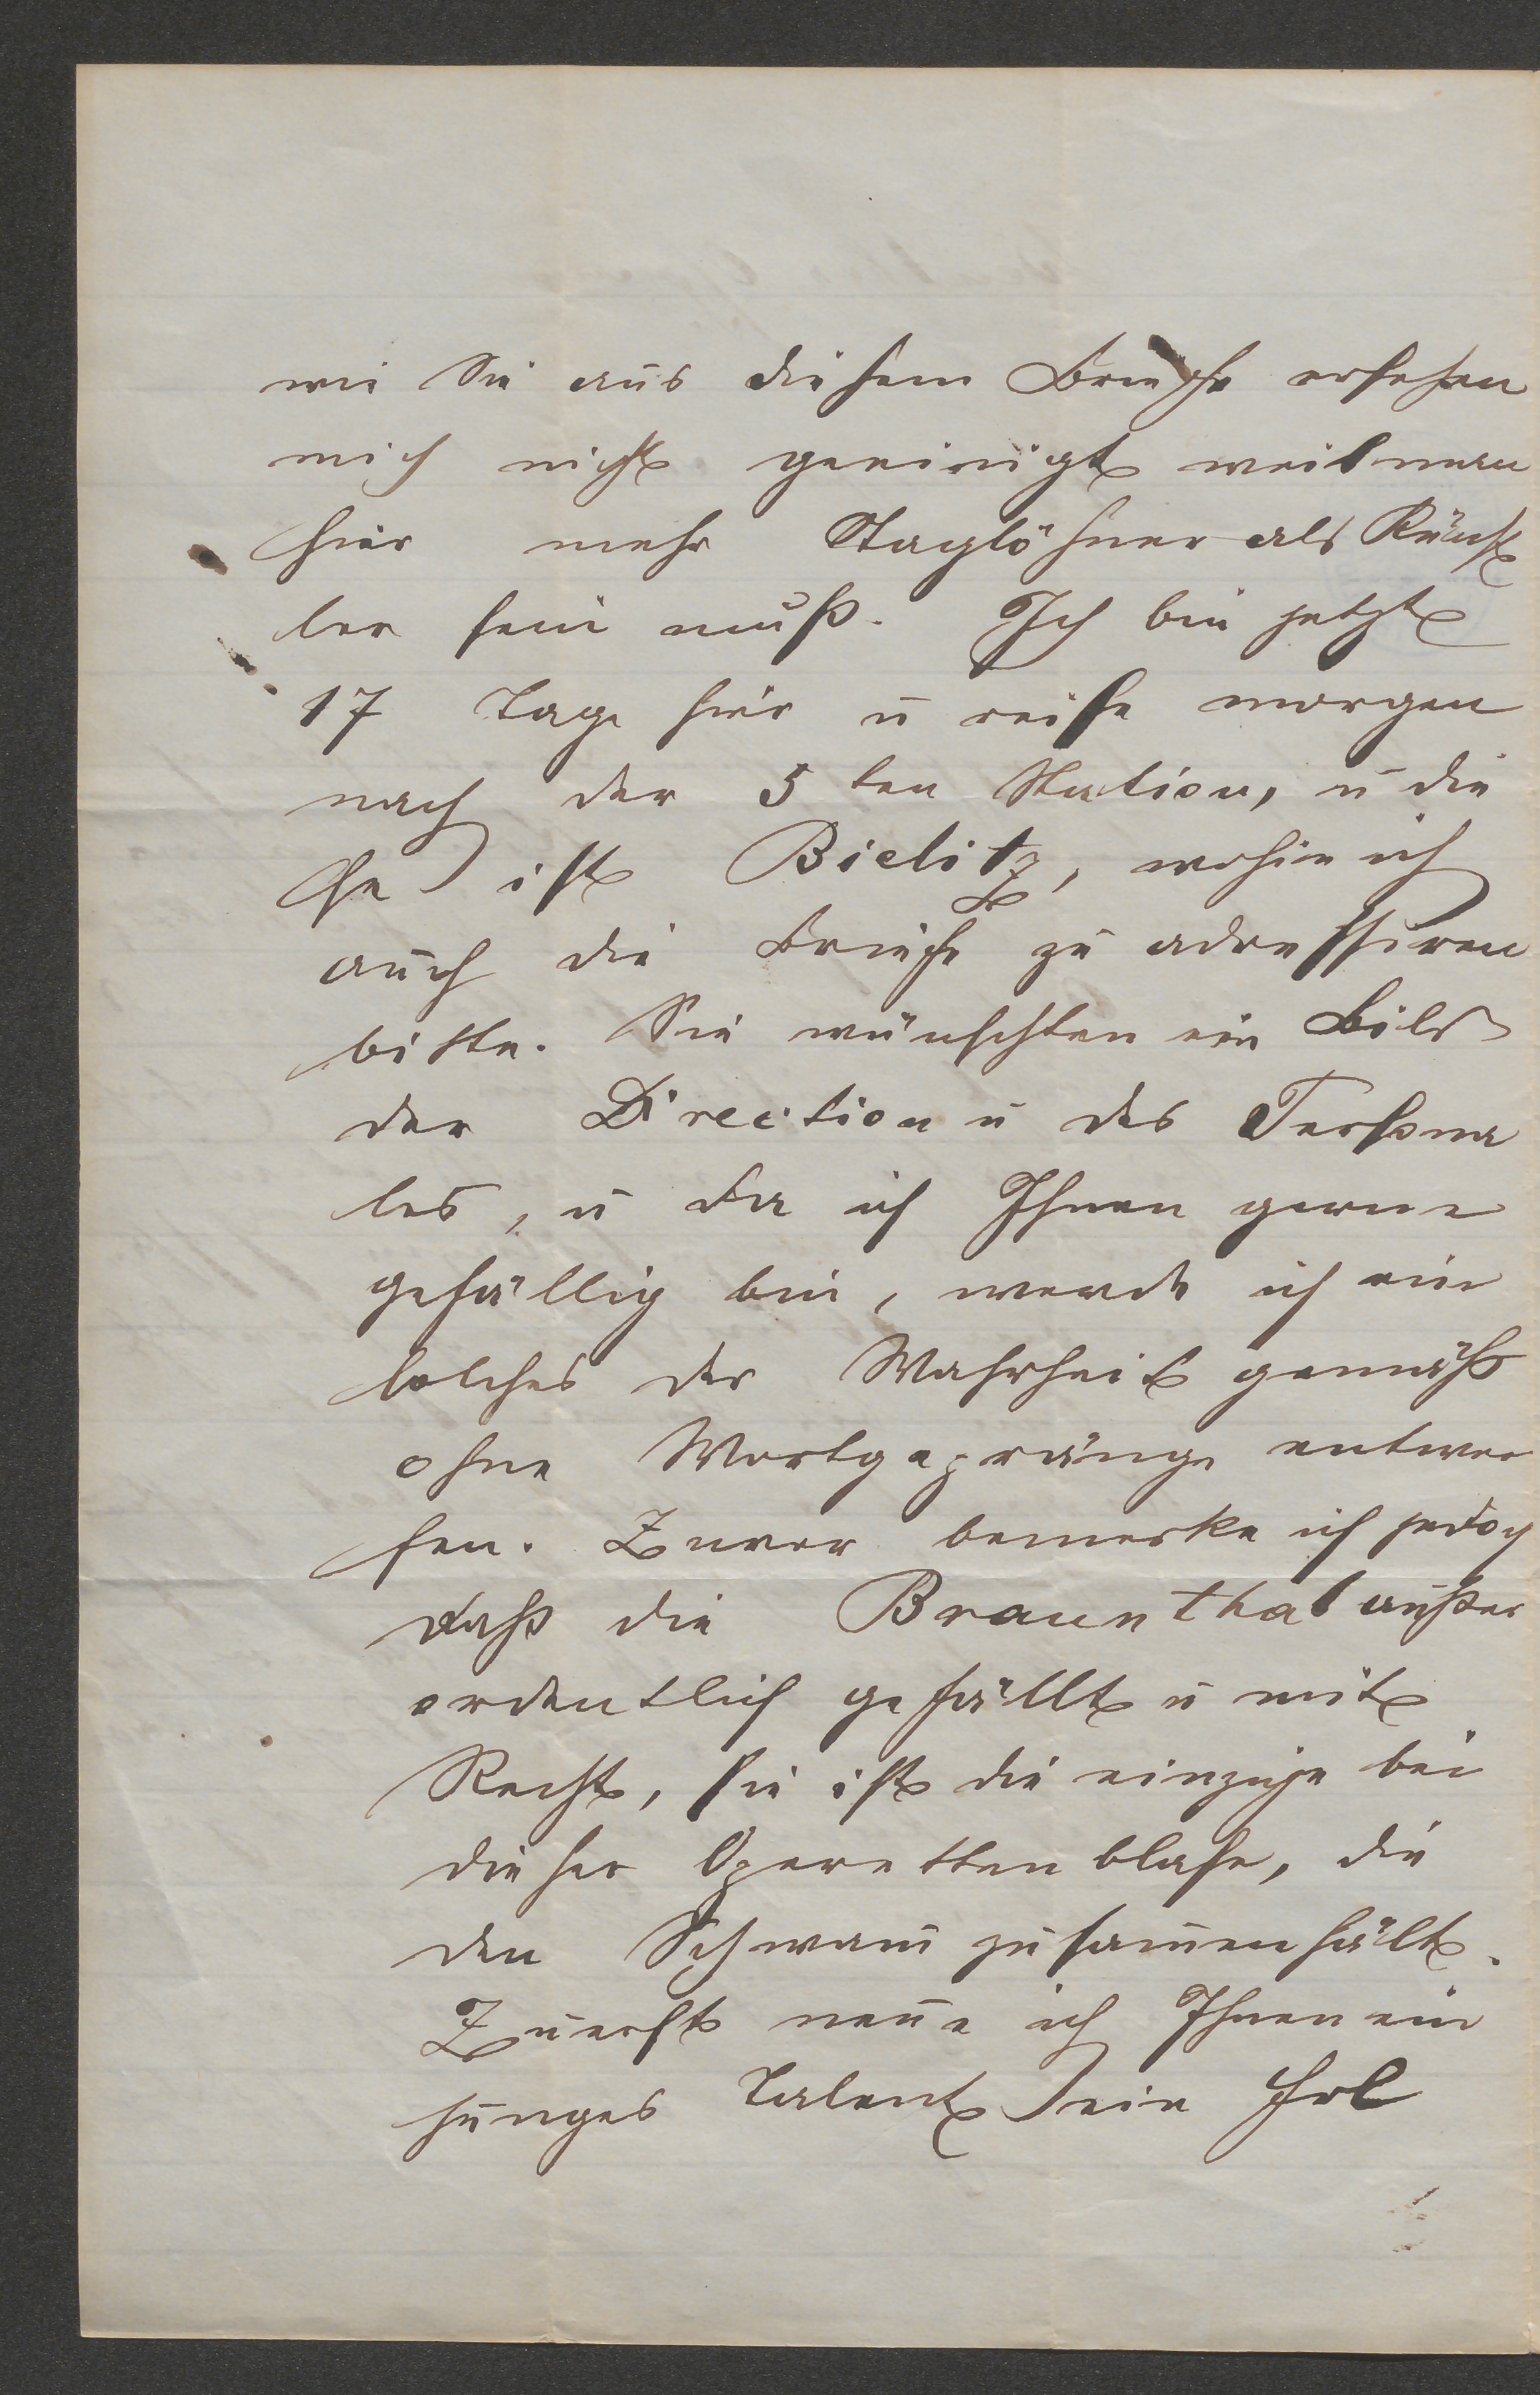 wie Sie aus diesem Briefe ersehen
mich nicht geeinigt weil man
hier mehr Taglöhner als Künst
ler sein muß. Ich bin jetzt
17 Tage hier u reise morgen
nach der 5 ten Station, u die
se ist Bielitz, wohin ich
auch die Briefe zu adressiren
bitte. Sie wünschten ein Bild
der Direction u des Persona
les, u da ich Ihnen gerne
gefällig bin, werde ich ein
solches der Wahrheit gemäß
ohne Wortgepränge entwer
fen. Zuvor bemerke ich jedoch
daß die Braunthal außer
ordentlich gefällt u mit
Recht, sie ist die einzige bei
dieser Operettenblase, die
den Schwam̄ zusam̄enhält.
Zuerst nen̄e ich Ihnen ein
junges Talent ein Frl